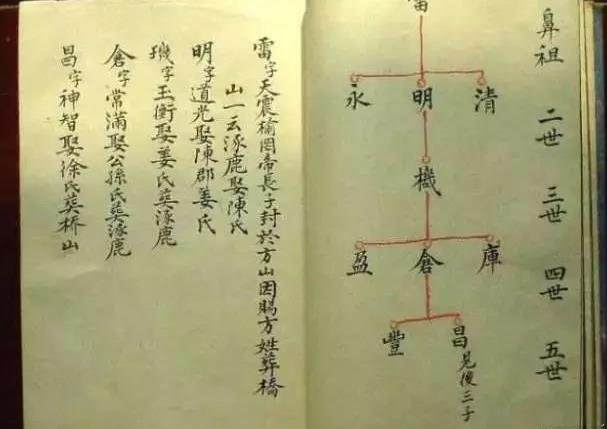 鼻祖
二世
三世
四世
五世
雷
清 明 永
機
庫 倉 盈
昌 見後三子 豐
雷字天震榆罔帝長子封於方山因賜方姓葬橋
山一云涿鹿娶陳氏
明字道光娶陳郡姜氏
璣字玉衡娶姜氏葬涿鹿
倉字常滿娶公孫氏葬涿鹿
昌字神智娶徐氏葬桥山